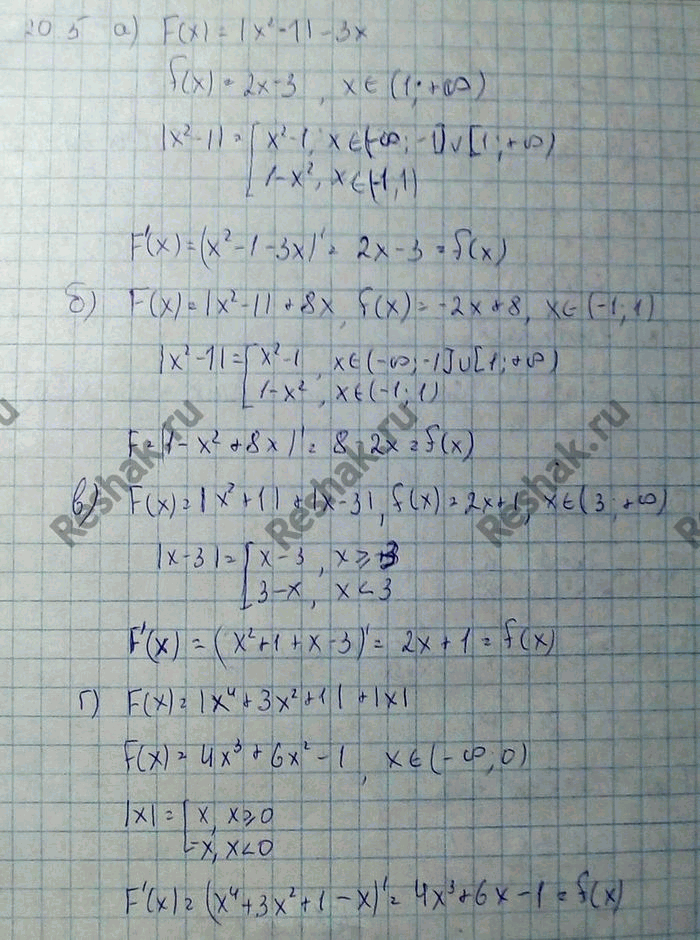 20.5 а) F(x) = |x²-1| - 3x
f(x) = 2x-3, x∈(1;+∞)
|x²-1| = [ x²-1, x∈(-∞;-1]∪[1;+∞)
1-x², x∈(-1;1)
F'(x) = (x²-1-3x)' = 2x-3 = f(x)
б) F(x) = |x²-1| + 8x, f(x) = -2x+8, x∈(-1;1)
|x²-1| = [ x²-1, x∈(-∞;-1]∪[1;+∞)
1-x², x∈(-1;1)
F = (1-x²+8x)' = 8-2x = f(x)
в) F(x) = |x²+1| + |x-3|, f(x) = 2x+1, x∈(3;+∞)
|x-3| = [ x-3, x≥3
3-x, x<3
F'(x) = (x²+1+x-3)' = 2x+1 = f(x)
г) F(x) = |x⁴+3x²+1| + |x|
f(x) = 4x³+6x²-1, x∈(-∞;0)
|x| = [ x, x≥0
-x, x<0
F'(x) = (x⁴+3x²+1-x)' = 4x³+6x-1 = f(x)
Reshak.ru
Reshak.ru